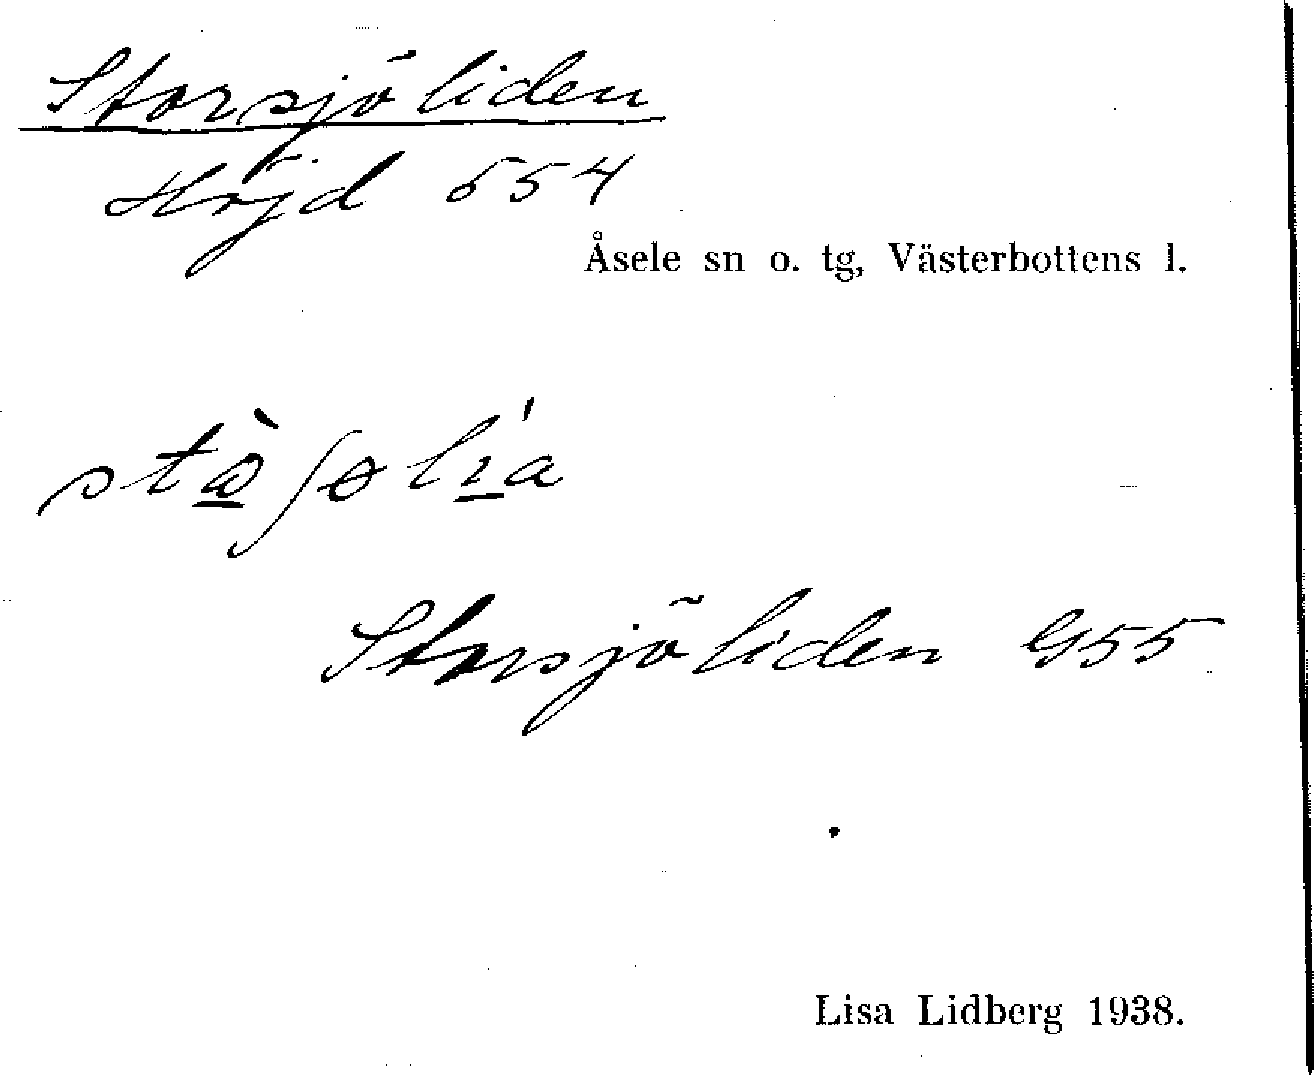 Storsjöliden
Höjd 554
Åsele sn o. tg, Västerbottens l.
Storsjöliden G55
Lisa Lidberg 1938.